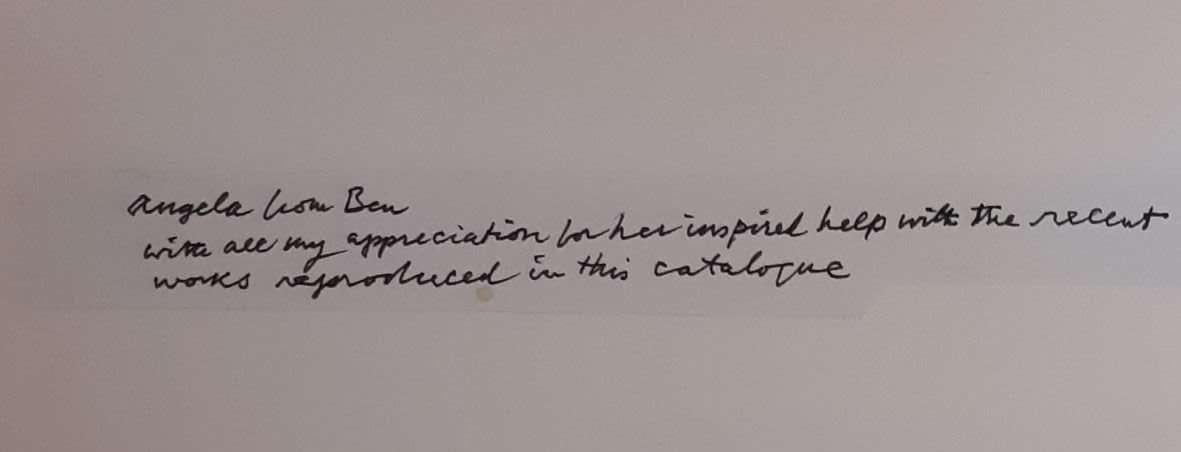 Angela from Ben
with all my appreciation for her inspired help with the recent
works reproduced in this catalogue